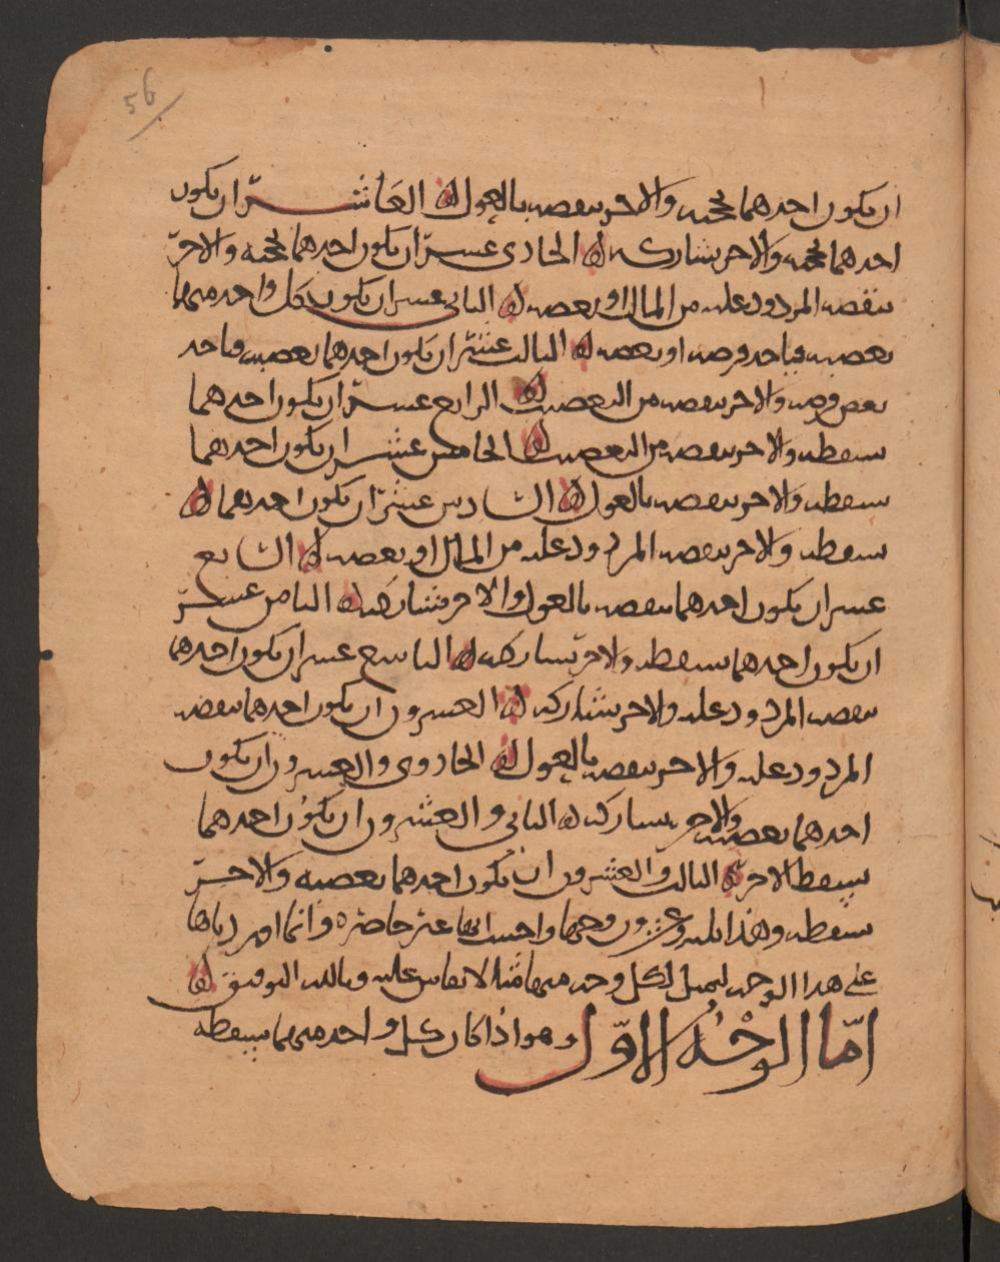 56
ان يكون احدهما يحجبه والاخر ينقصه بالعول ۞ العاشر ان يكون
احدهما يحجبه والاخر يشاركه ۞ الحادي عشر ان يكون احدهما يحجبه والاخر
ينقصه المردود عليه من المال او بعصبه ۞ الثاني عشر ان يكون كل واحد منهما
بعصبه فياخذ فرضه او بعضه ۞ الثالث عشر ان يكون احدهما بعصبه فياخذ
بعض فرضه والاخر ينقصه من التعصيب ۞ الرابع عشر ان يكون احدهما
يسقطه والاخر ينقصه من التعصيب ۞ الخامس عشر ان يكون احدهما
يسقطه والاخر ينقصه بالعول ۞ السادس عشر ان يكون احدهما
يسقطه والاخر ينقصه المردود عليه من المال او بعصبه ۞ السابع
عشر ان يكون احدهما ينقصه بالعول والاخر يشاركه ۞ الثامن عشر
ان يكون احدهما يسقطه والاخر يشاركه ۞ التاسع عشر ان يكون احدهما
ينقصه المردود عليه والاخر يشاركه ۞ العشرون ان يكون احدهما ينقصه
المردود عليه والاخر ينقصه بالعول ۞ الحادي والعشرون ان يكون
احدهما بعصبه والاخر يشاركه ۞ الثاني والعشرون ان يكون احدهما
يسقط الاخر ۞ الثالث والعشرون ان يكون احدهما بعصبه والاخر
يسقطه وهذا ثلثه وعشرون وجها واحسب انها غير حاضره وانما اوردناها
على هذا الوجه لنمثل لكل وجه منها مثالا يقاس عليه وبالله التوفيق ۞
امّا الوَجْهُ الاوّل وهو اذا كان كل واحد منهما يسقطه